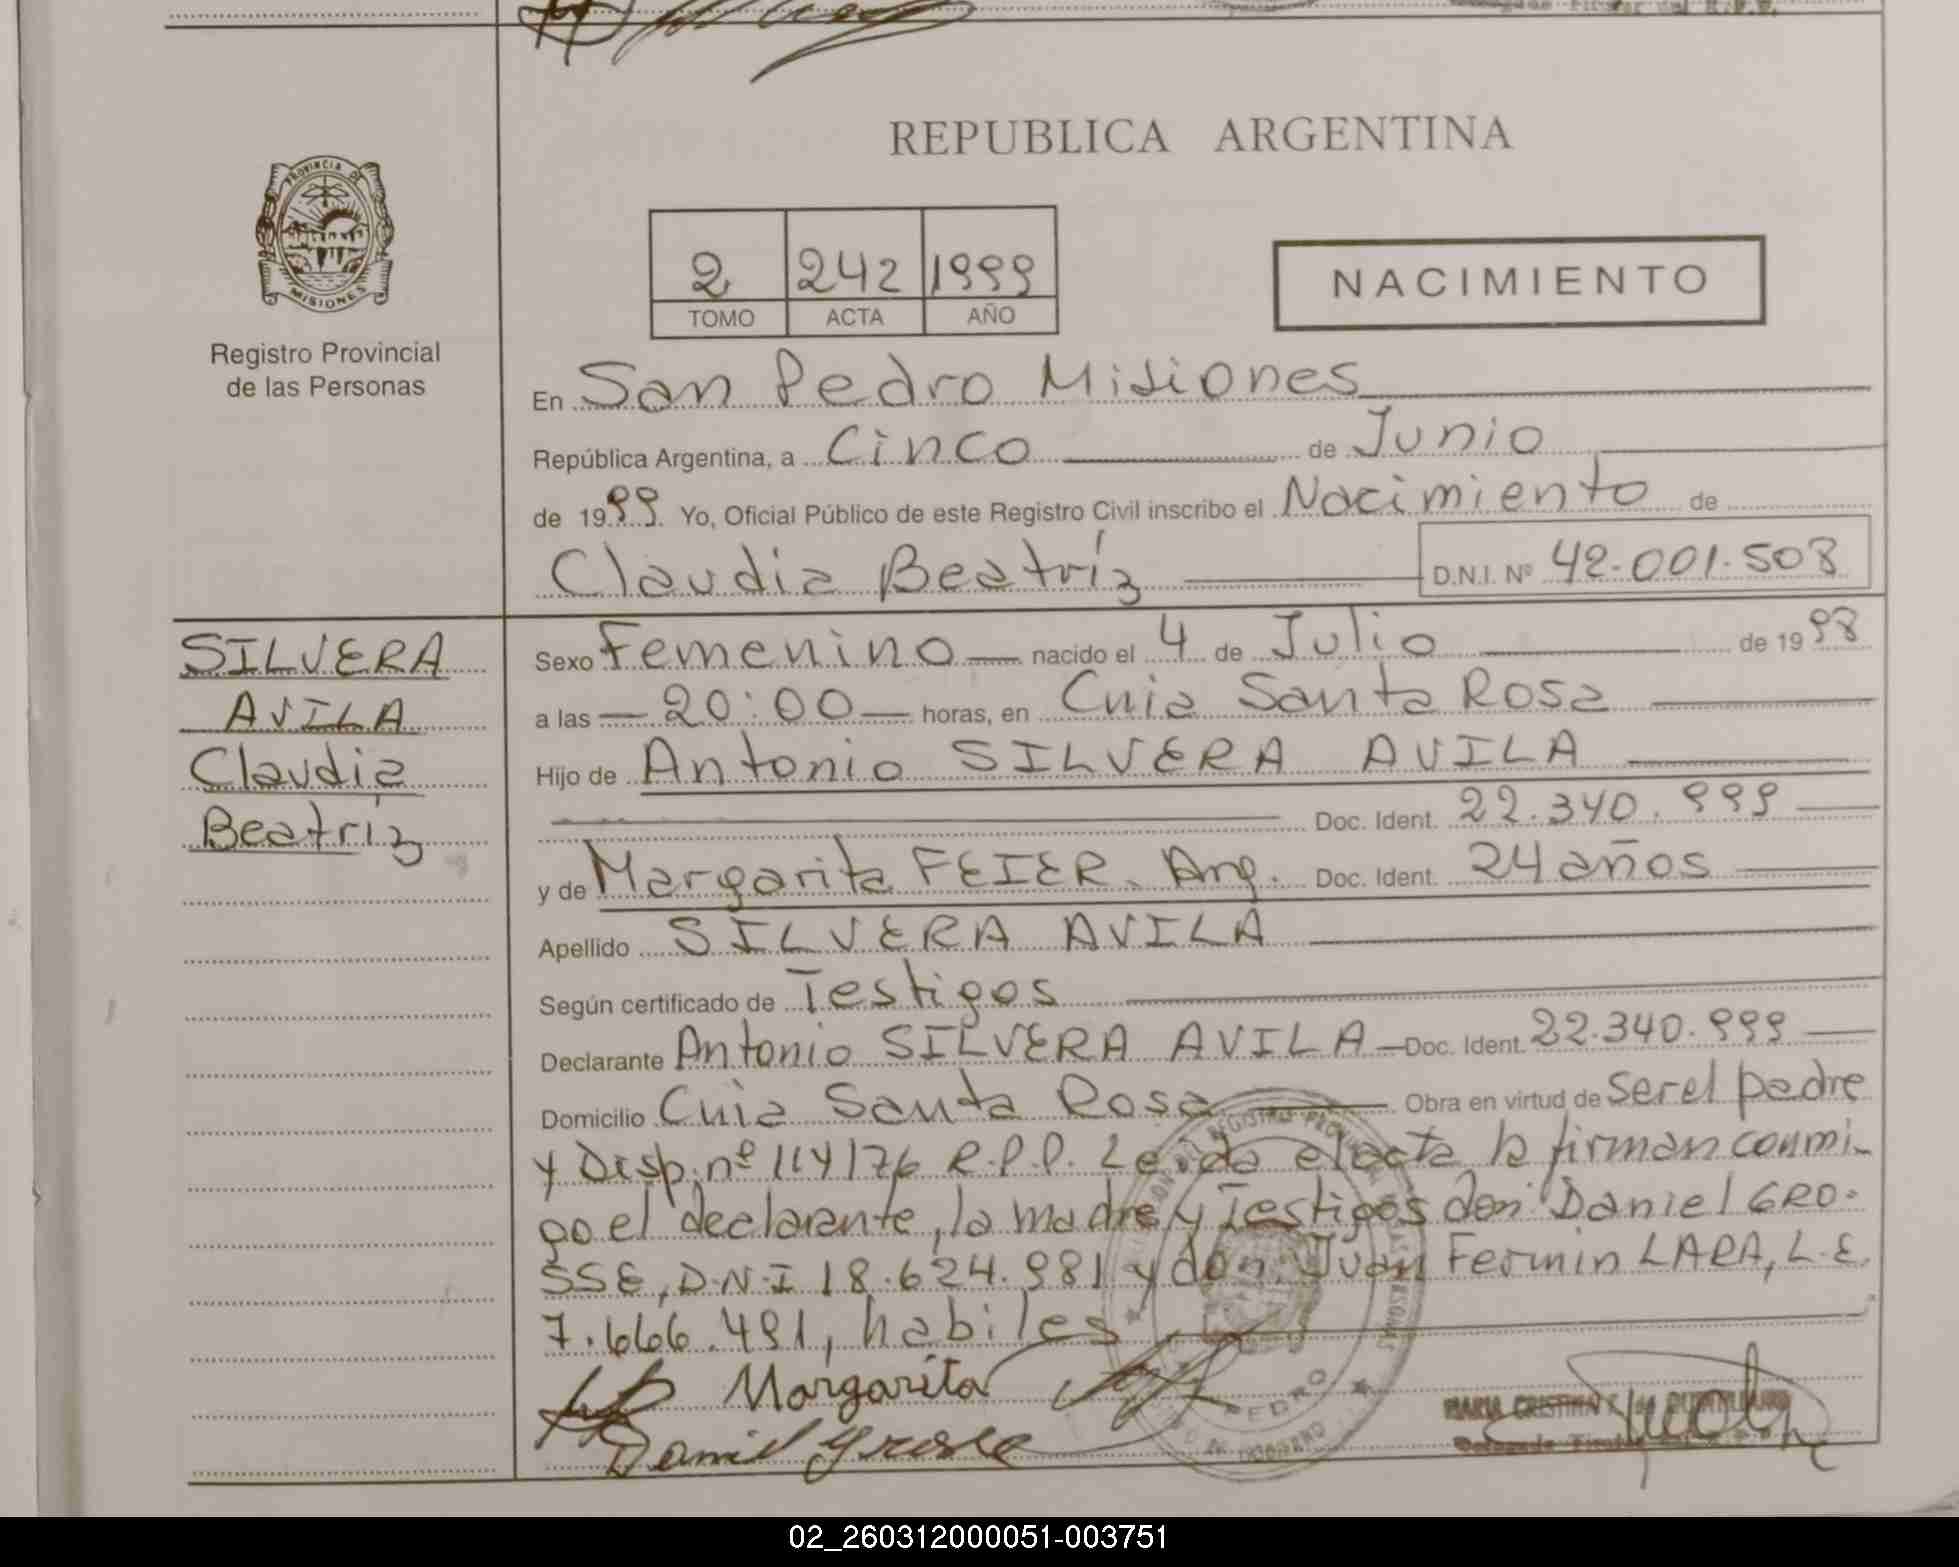 REPUBLICA ARGENTINA
PROVINCIA DE
MISIONES
Registro Provincial
de las Personas
2 242 1999
TOMO ACTA AÑO
NACIMIENTO
En San Pedro Misiones
República Argentina, a Cinco de Junio
de 1999. Yo, Oficial Público de este Registro Civil inscribo el Nacimiento de
Claudia Beatríz D.N.I. Nº 42.001.508
SILVERA
AVILA
Claudia
Beatríz
Sexo Femenino nacido el 4 de Julio de 1998
a las 20:00 horas, en Cuia Santa Rosa
Hijo de Antonio SILVERA AVILA
Doc. Ident. 22.340.999
y de Margarita FEIER. Arg. Doc. Ident. 24 años
Apellido SILVERA AVILA
Según certificado de Testigos
Declarante Antonio SILVERA AVILA Doc. Ident. 22.340.999
Domicilio Cuia Santa Rosa Obra en virtud de ser el padre
y Disp. nº 114/76 R.P.P. Leida el acta la firman conmi-
go el declarante, la madre y Testigos don Daniel GRO-
SSE, D.N.I 18.624.981 y don Juan Fermin LARA, L.E.
7.666.491, habiles
Margarita
Daniel Grosse
PEDRO
MARIA CRISTINA
Delegada Titular del
02_260312000051-003751